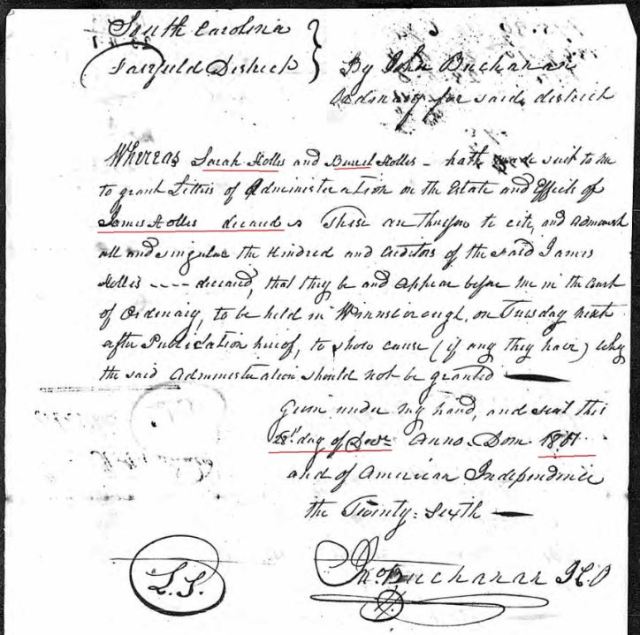 South Carolina
Fairfield District } By John Buchanan
Ordinary for said district
Whereas Sarah Hollis and Burrel Hollis – hath made suit to me
to grant Letters of Administration on the Estate and Effects of
James Hollis deceased These are therefore to cite, and admonish
all and singular the Kindred and Creditors of the said James
Hollis ---- deceased, that they be and appear before me in the Court
of Ordinary, to be held in Winnsborough, on Tuesday next
after Publication hereof, to show cause (if any they have) why
the said Administration should not be granted —
Given under my hand, and seal this
day of Decr. Anno. Dom 1801
and of American Independence
the Twenty: Sixth —
L.S. Jno Buchanan